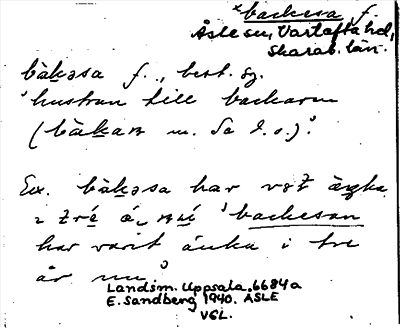 *backesa f.
Åsle sn, Vartofta hd,
Skarab. län.
bàkəsa f., best. sg.
'hustrun till backarn
(bàkaɴ m. Sa I.o.)'.
Ex. bàkəsa har vɑt æŋka
ɪ tré á, nú 'backesan
har varit änka i tre
år nu.'
Landsm. Uppsala 6684a
E. Sandberg 1940. ÅSLE
VGL.